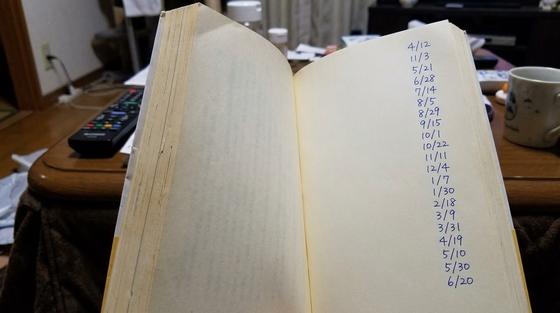 4/12
11/3
5/21
6/28
7/14
8/5
8/29
9/15
10/1
10/22
11/11
12/4
1/7
1/30
2/18
3/9
3/31
4/19
5/10
5/30
6/20